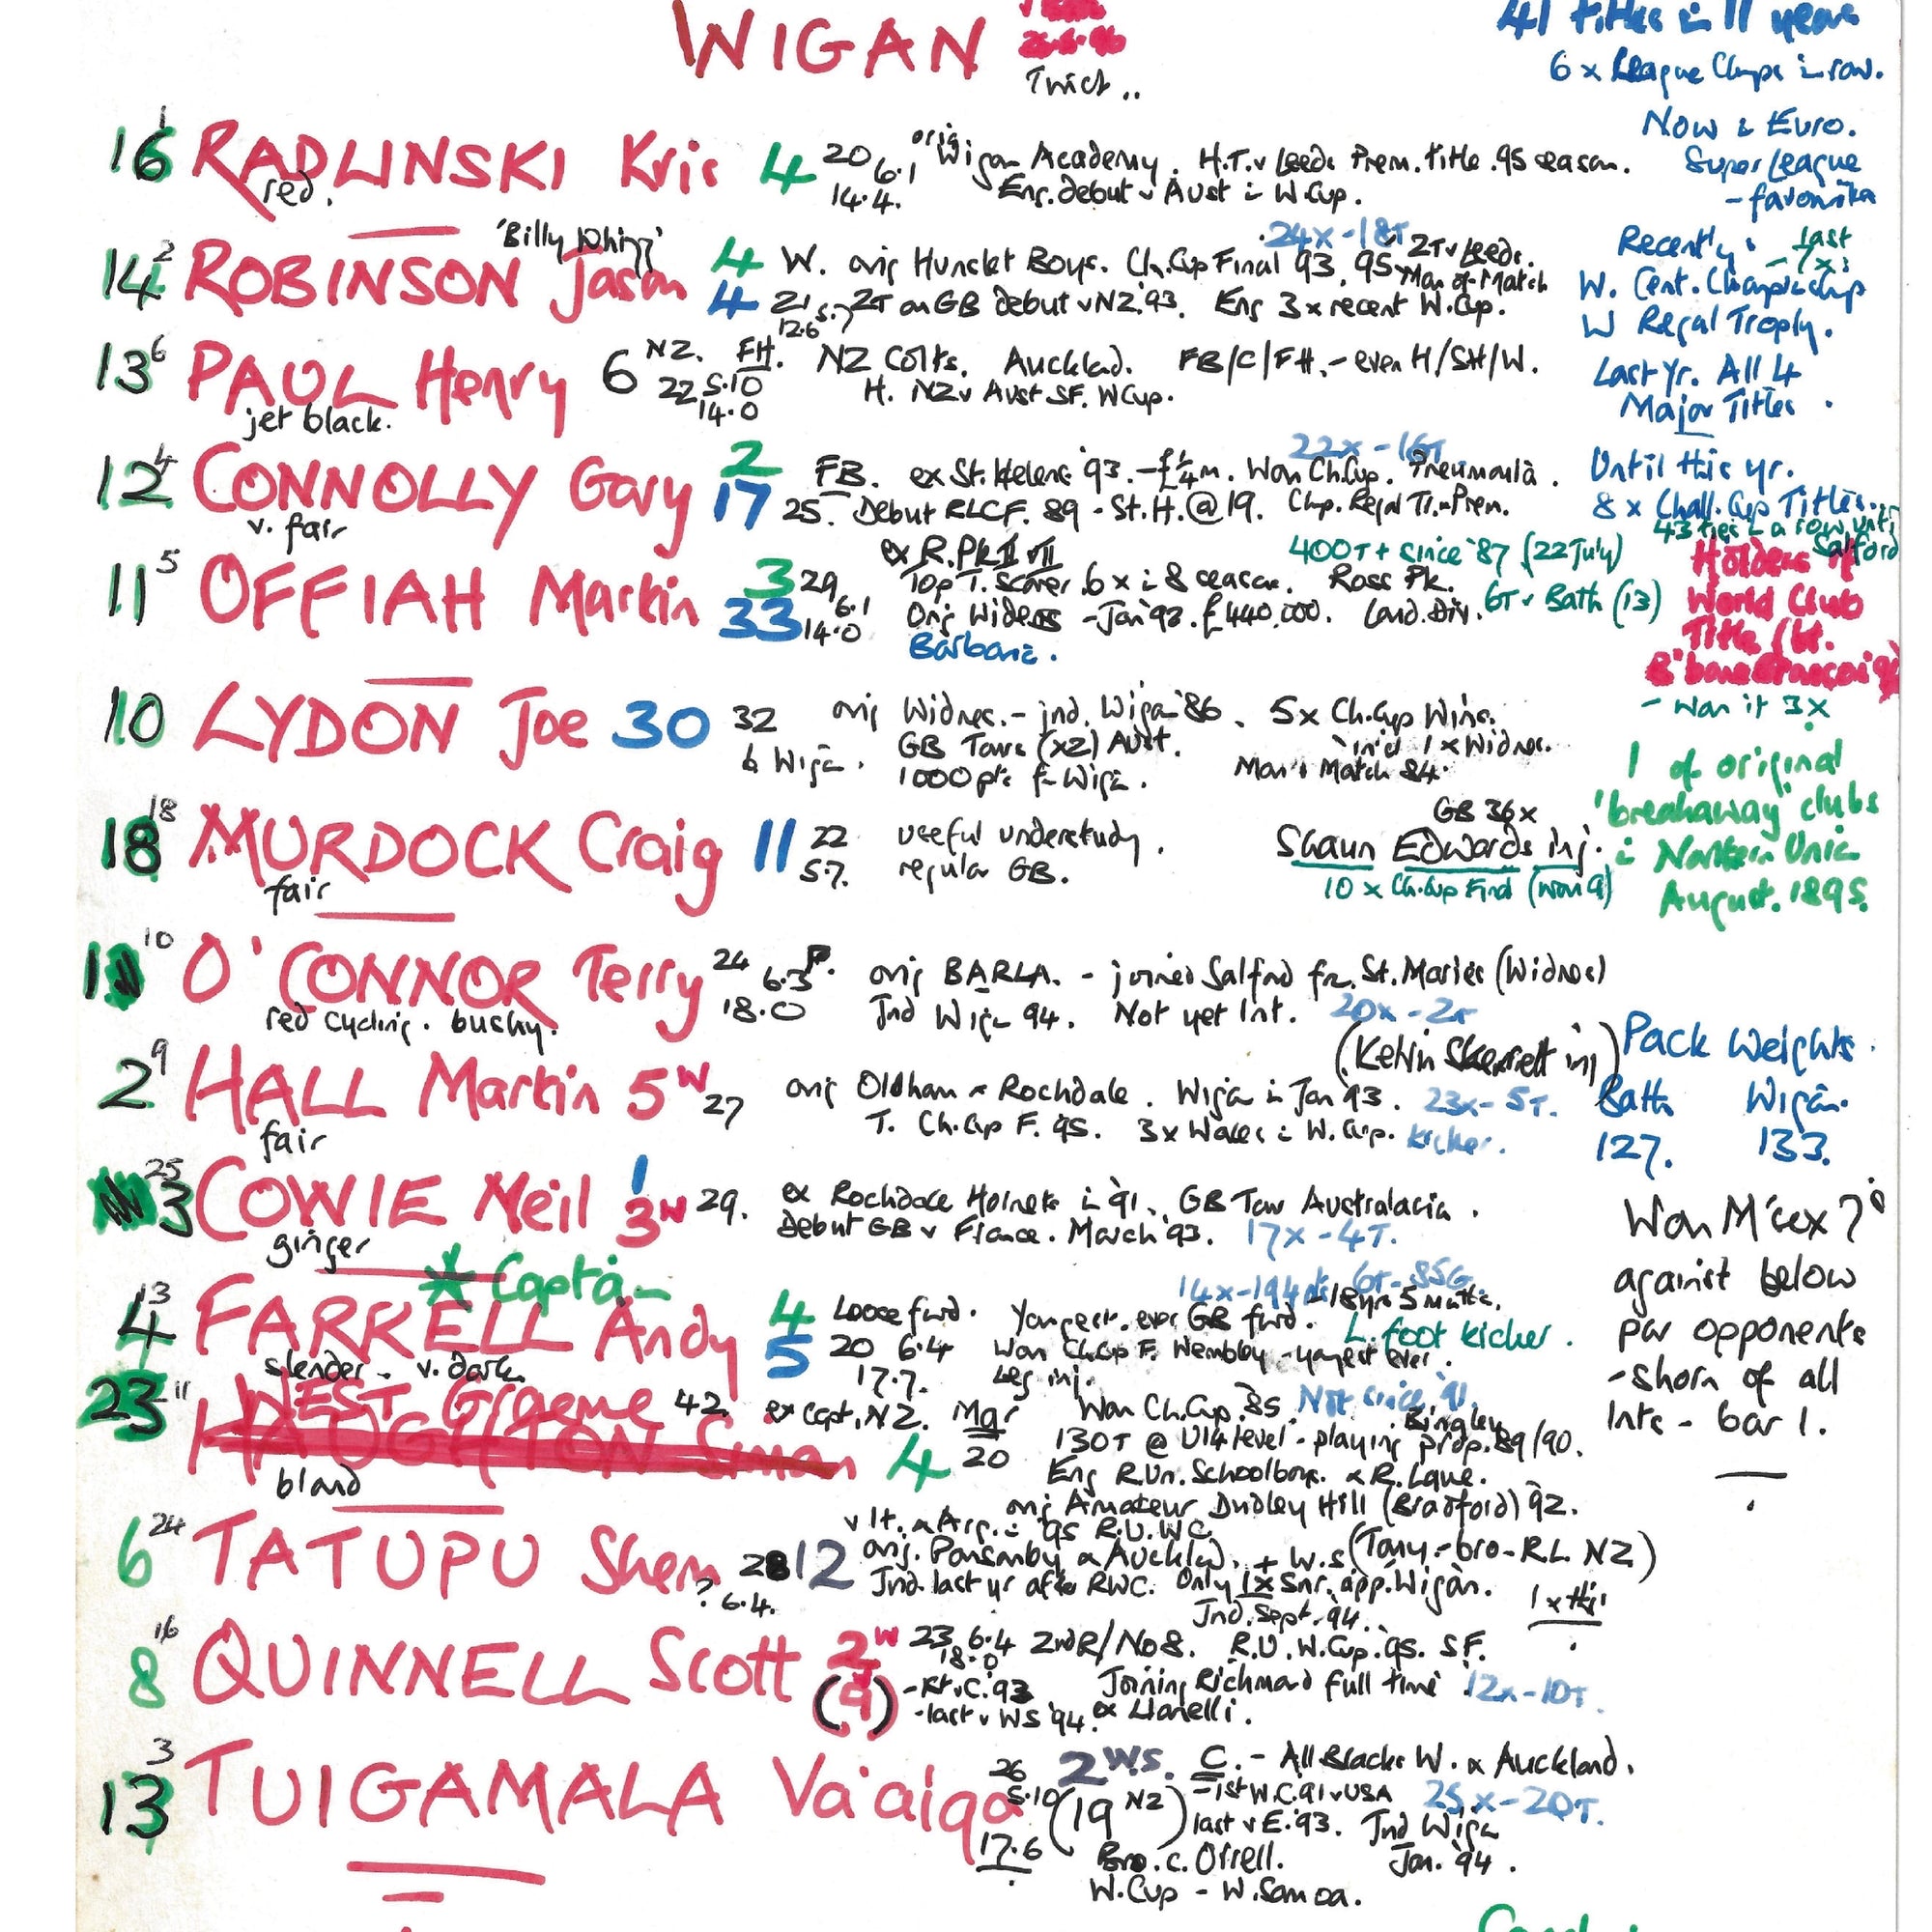 WIGAN
Twick..
41 titles in 11 years
6 x League Chmps in row.
Now in Euro.
Super League
- favourites
16 1 RADLINSKI Kris 4 20 6.1 14.4.
red.
orig Wigan Academy. H.T. v Leeds Prem. title .95 season.
Eng. debut v Aust in W.Cup.
'Billy Whizz'
14 2 ROBINSON Jason 4 4
24x - 18T
W. orig Hunslet Boys. Ch.Cup Final 93, 95 2T v Leeds.
Man-of-Match
21 5.7 12.6 2T on GB debut v NZ.'93. Eng 3 x recent W.Cup.
Recently: last
W. Cent. Champ'ship
W Regal Trophy.
13 6 PAUL Henry 6 NZ. FH. 22 5.10 14.0
jet black.
NZ Colts. Auckland. FB/C/FH. - even H/SH/W.
H. NZ v Aust SF. WCup.
Last Yr. All 4
Major Titles.
12 4 CONNOLLY Gary 2 17
v. fair
22x - 16T
FB. ex St. Helens '93. - £¼m. Won Ch.Cup. Pneumonia.
25. Debut RLCF. 89 - St.H. @ 19.
Until this yr.
8 x Chall. Cup Titles..
43 ties in a row until
Salford
11 5 OFFIAH Martin 3 33 29 6.1 14.0
ex R.Pk
400T+ since '87 (22 July)
Top T. Scorer 6 x in 8 seasons. Ross Pk.
6T v Bath (13)
Orig Widnes - Jan '92. £440,000. Lond. Div.
Barbarians.
Holders of
World Club
Title (bt.
- won it 3x
10 LYDON Joe 30 32
orig Widnes. - jnd. Wigan '86. 5x Ch.Cup Wins.
GB Tours (x2) Aust. incl 1 x Widnes.
b Wigan. 1000 pts for Wigan. Man o Match 84.
1 of original
'breakaway' clubs
in Northern Union
August. 1895.
18 18 MURDOCK Craig 11 22 5.7.
fair
useful understudy.
regular GB.
GB 36x
Shaun Edwards inj.
10 x Ch.Cup Final (won 9)
10 O'CONNOR Terry 24 6.3 P. 18.0
red cycling. bushy.
orig BARLA. - joined Salford fr. St. Maries (Widnes)
Jnd Wigan 94. Not yet Int. 20x - 2T
(Kelvin Skerrett inj)
2 9 HALL Martin 5 W 27
fair
orig Oldham & Rochdale. Wigan in Jan 93. 23x - 5T.
T. Ch.Cup F. 95. 3x Wales in W.Cup. kicker.
Pack Weights.
Bath Wigan.
127. 133.
25 3 COWIE Neil 1 3 W 29.
ginger
ex Rochdale Hornets in '91. GB Tour Australasia.
Debut GB v France. March '93. 17x - 4T.
* Captain
4 13 FARRELL Andy 4 5
slender - v. dark
14x - 194pts 6T - 85G
Loose fwd. Youngest ever GB fwd. - 18yrs 5 mths.
L. foot kicker.
20 6.4 17.7. Won Ch.Cup F. Wembley - youngest ever.
Leg inj.
Won M'sex 7's
against below
par opponents
- shorn of all
Ints - bar 1.
23 11 WEST Graeme 42. ex capt, NZ. Mgr Won Ch.Cup .85. Not since '91.
HAUGHTON Simon 4 20
bland
Bingley
130T @ U14 level - playing prop. 89/90.
Eng R.Un. Schoolboys. & R. Lgue.
orig Amateur Dudley Hill (Bradford) '92.
6 24 TATUPU Shem 28 12
? 6.4.
v It. & Arg. in '95 R.U. W.C.
orig. Ponsonby & Auckland. + W.S (Tony - bro - R.L. NZ)
Jnd. last yr after RWC. Only 1x Snr. app. Wigan.
8 16 QUINNELL Scott 2 W (9)
Jnd. Sept. 94.
23 6.4 18.0 2ndR/No8. R.U. W.Cup. 95. SF.
- 1st v C. 93 Joining Richmond full time 12x - 10T.
- last v WS '94. ex Llanelli.
13 3 TUIGAMALA Va'aiga 26 5.10 17.6
2 W.S. (19 NZ)
C. - All Blacks W. & Auckland.
- 1st W.C. 91 v USA 25x - 20T.
last v E. '93. Jnd Wigan
Jan. '94.
Bro. c. Orrell.
W.Cup - W. Samoa.